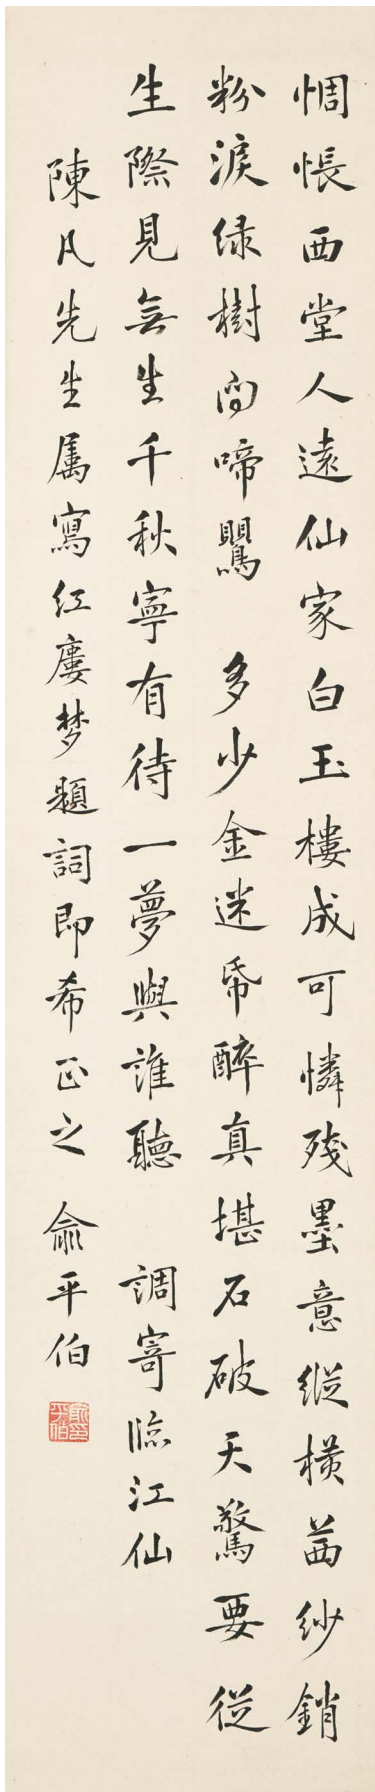 惆悵西堂人遠仙家白玉樓成可憐殘墨意縱橫茜紗銷
粉淚綠樹問啼鸎　多少金迷帋醉真堪石破天驚要從
生際見無生千秋寧有待一夢與誰聽　調寄臨江仙
陳凡先生屬寫红廔梦題詞即希正之　俞平伯
俞平伯